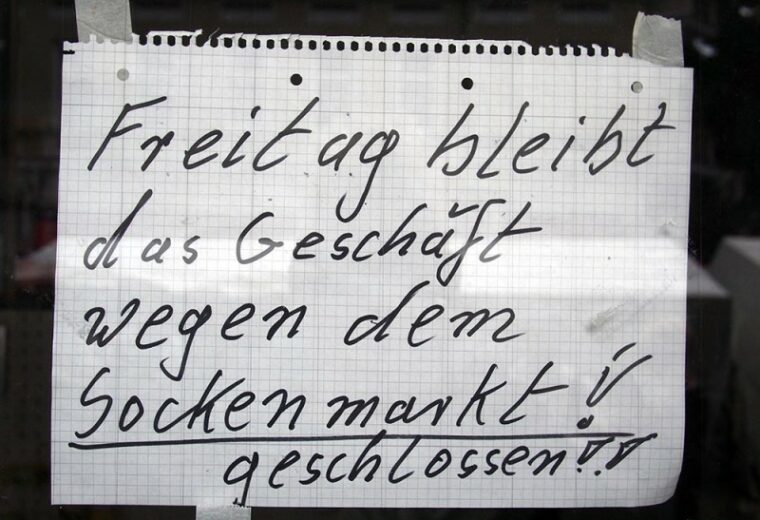 Freitag bleibt
das Geschäft
wegen dem
Sockenmarkt!
geschlossen!!